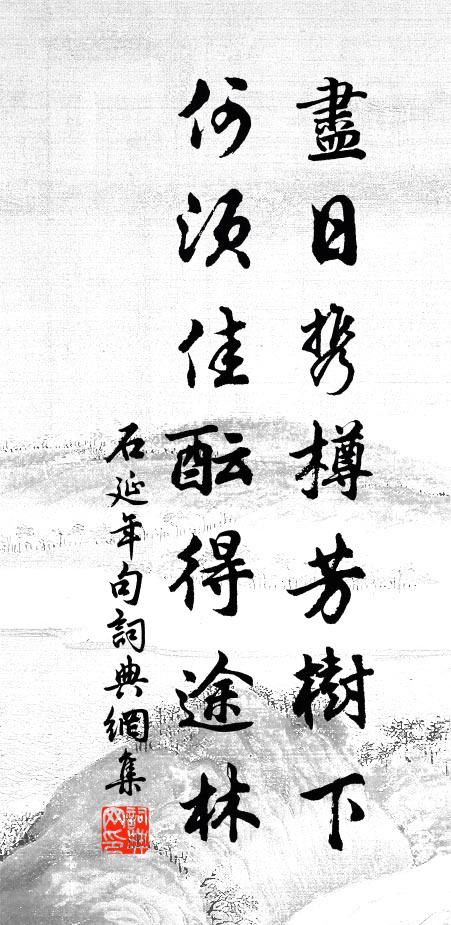 盡日携樽芳樹下
何須佳酝得途林
石延年句詞典網集